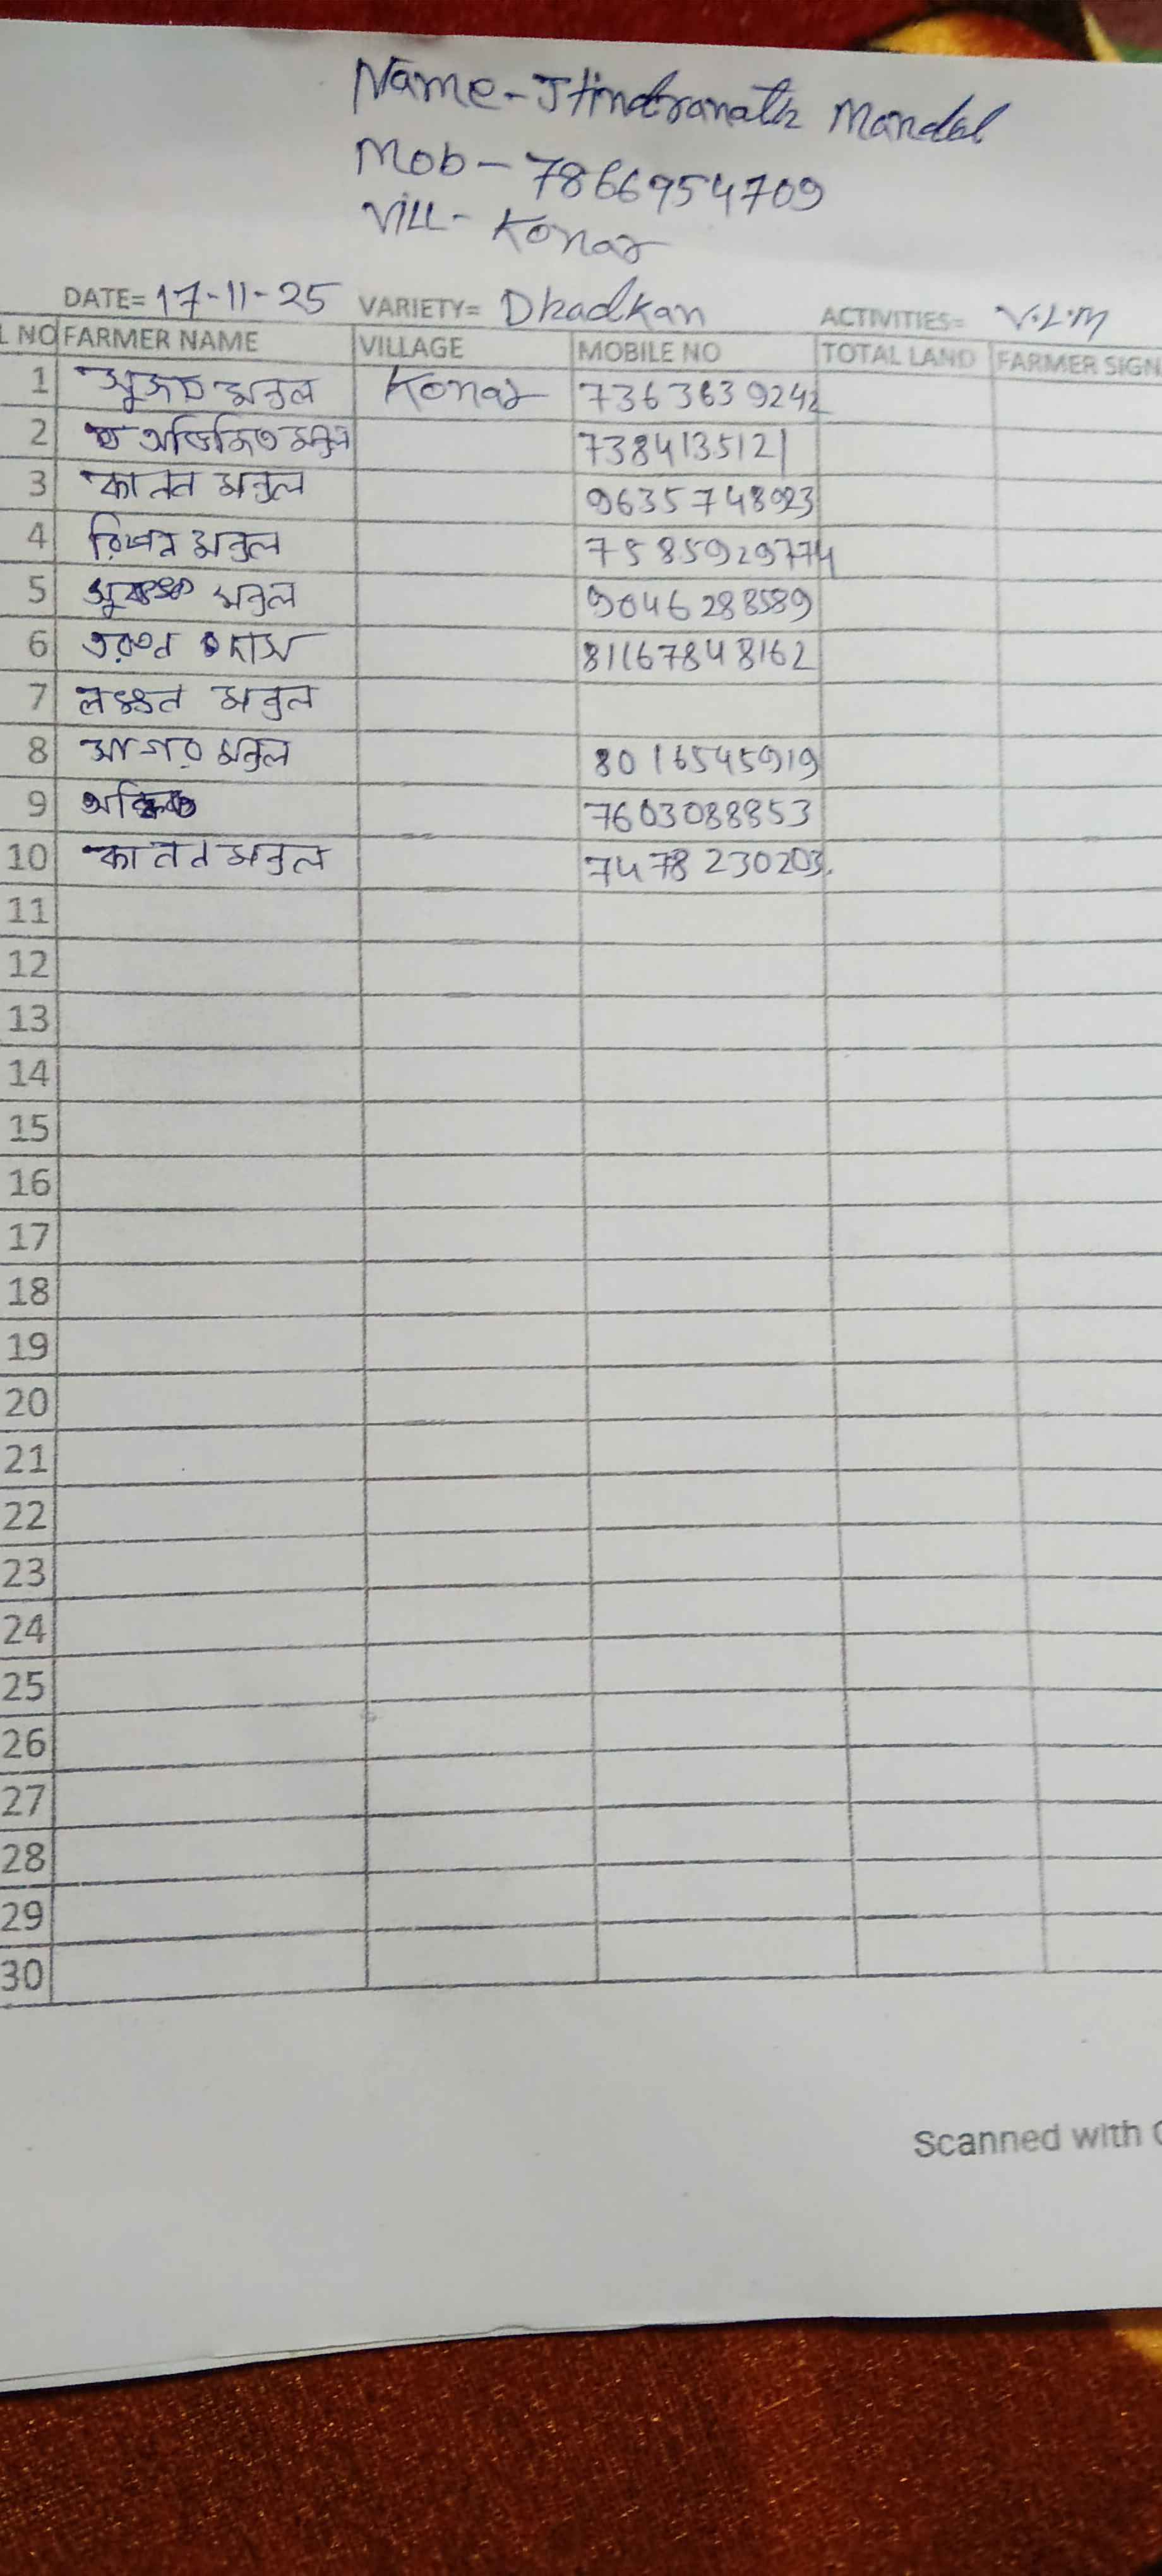 Name-Jtindranath Mandal
Mob-7866954709
Vill- Konar
DATE= 17-11-25 VARIETY= Dhadkan ACTIVITIES= V.L.M
L NO FARMER NAME VILLAGE MOBILE NO TOTAL LAND FARMER SIGN
1 মন্ডল Konar 7363639242
2 অভিজিত মন্ডল 7384135121
3 কানন মন্ডল 9635748923
4 রিপন মন্ডল 7585929774
5 মন্ডল 9046288589
6 দাস 81167848162
7 মন্ডল
8 সাগর মন্ডল 8016545919
9 7603088853
10 কানন মন্ডল 7478230203.
11
12
13
14
15
16
17
18
19
20
21
22
23
24
25
26
27
28
29
30
Scanned with